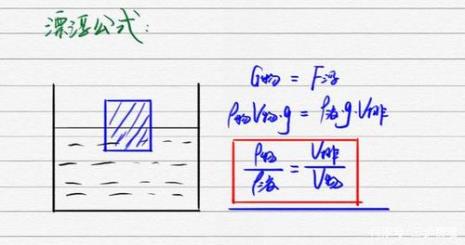 漂浮公式:
G物 = F浮
ρ物V物·g = ρ液·g·V排
ρ物/ρ液 = V排/V物